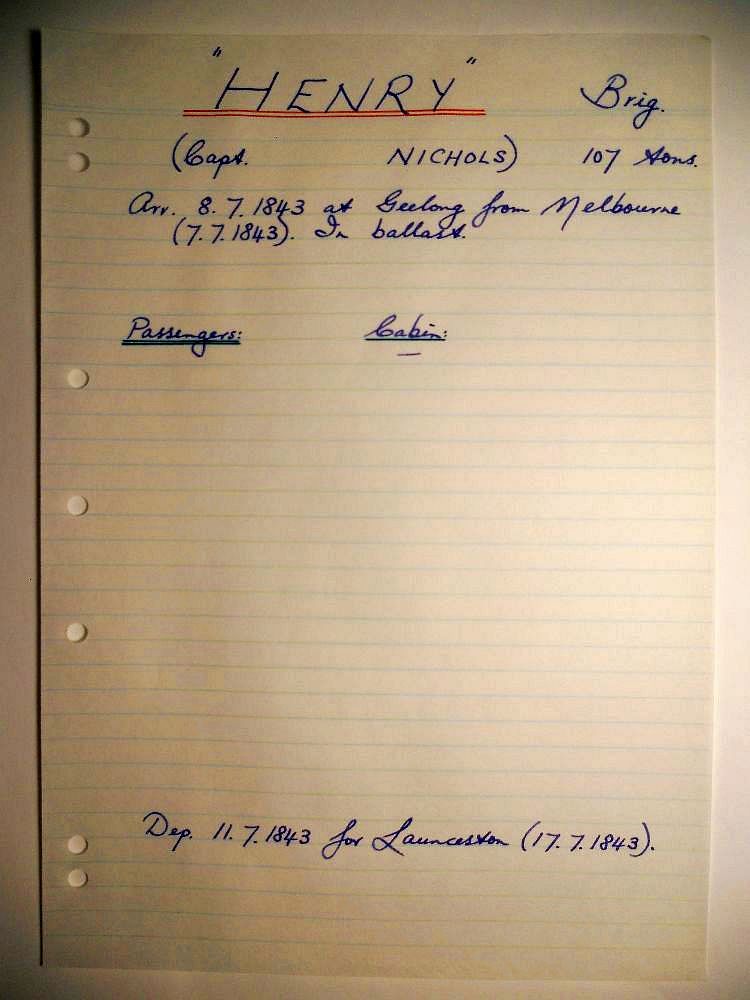 "HENRY" Brig.
(Capt. NICHOLS) 107 tons.
Arr. 8.7.1843 at Geelong from Melbourne
(7.7.1843). In ballast.
Passengers: Cabin:
—
Dep. 11.7.1843 for Launceston (17.7.1843).